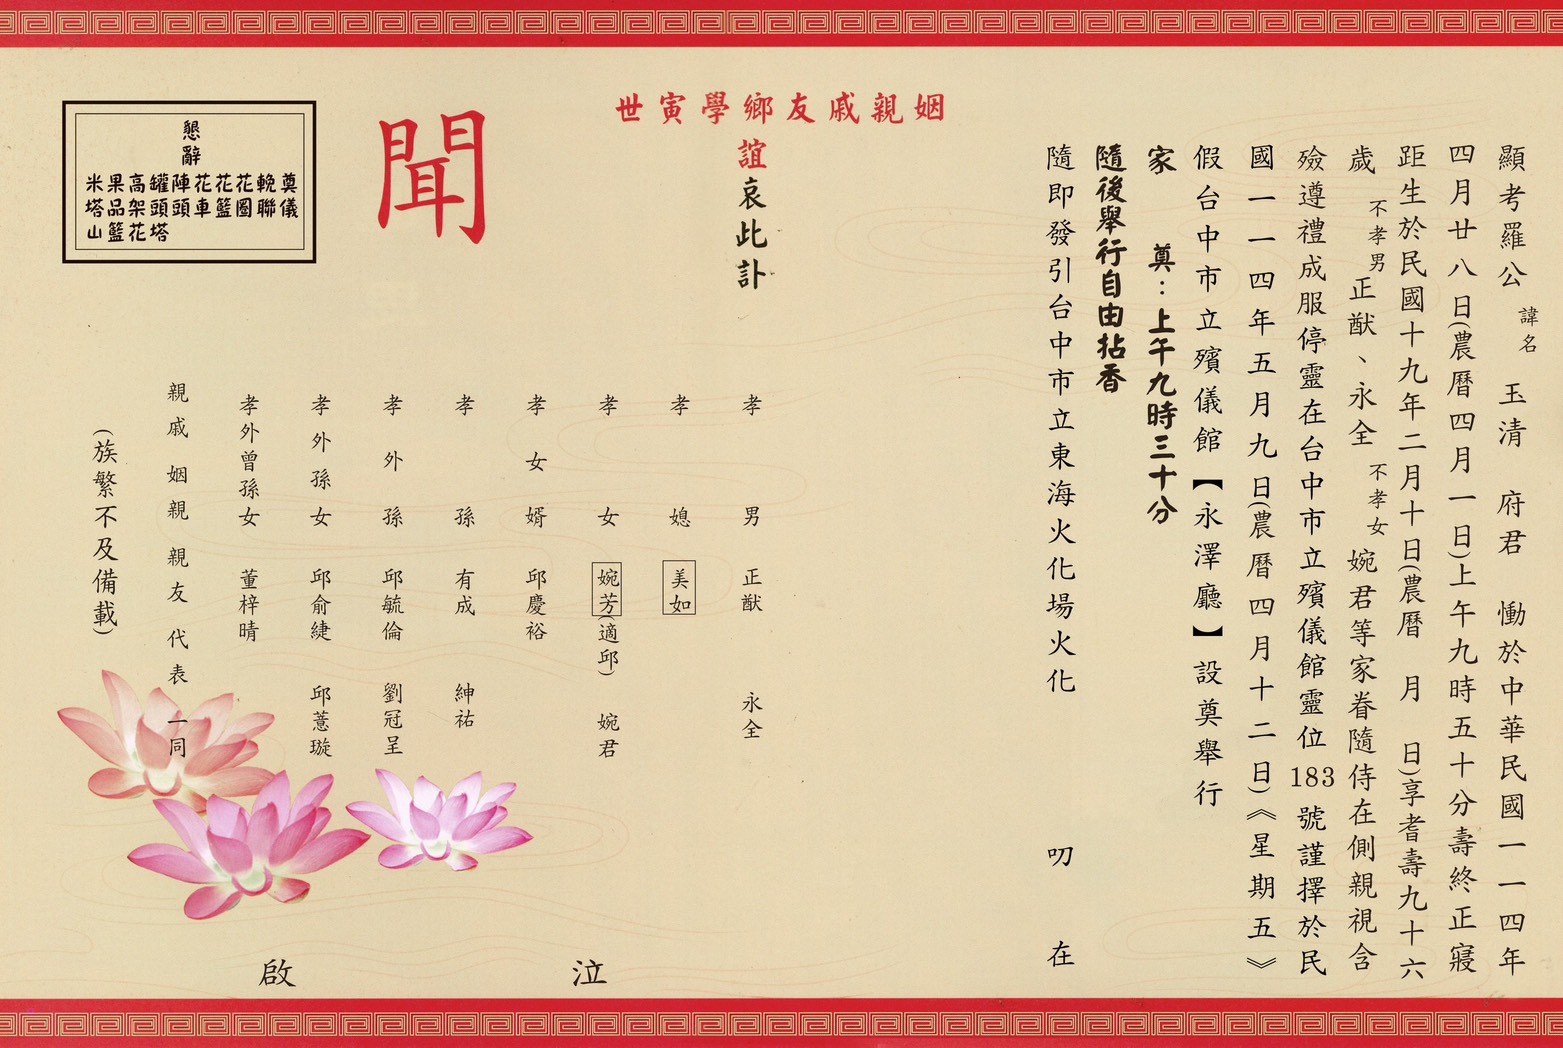 顯考羅公諱名玉清府君慟於中華民國一一四年
四月廿八日(農曆四月一日)上午九時五十分壽終正寢
距生於民國十九年二月十日(農曆　月　日)享耆壽九十六
歲不孝男正猷、永全不孝女婉君等家眷隨侍在側親視含
殮遵禮成服停靈在台中市立殯儀館靈位183號謹擇於民
國一一四年五月九日(農曆四月十二日)《星期五》
假台中市立殯儀館【永澤廳】設奠舉行
家　奠：上午九時三十分
隨後舉行自由拈香
隨即發引台中市立東海火化場火化　叨在
姻親戚友鄉學寅世
誼哀此訃
聞
孝男　正猷　永全
孝媳　美如
孝女　婉芳(適邱)　婉君
孝女婿　邱慶裕
孝孫　有成　紳祐
孝外孫　邱毓倫　劉冠呈
孝外孫女　邱俞緁　邱薏璇
孝外曾孫女　董梓晴
親戚姻親親友代表一同
(族繁不及備載)
泣啟
懇辭
奠儀
輓聯
花圈
花籃
花車
陣頭
罐頭塔
高架花
果品籃
米塔山